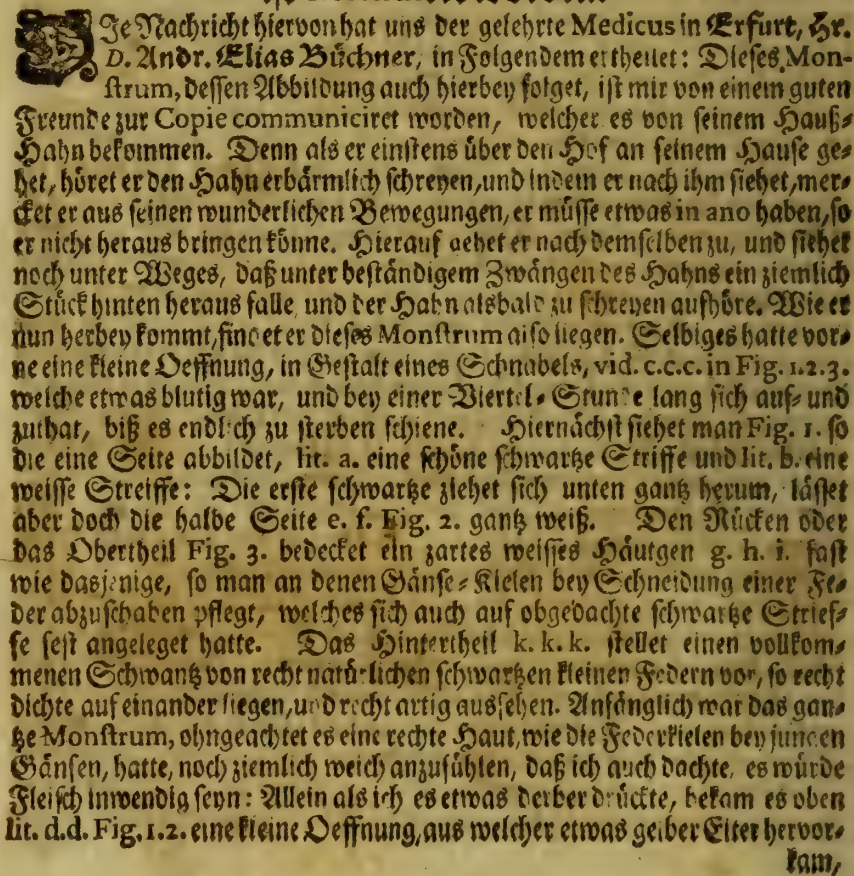 DJe Nachricht hiervon hat uns der gelehrte Medicus in Erfurt, Hr.
D. Andr. Elias Büchner, in Folgendem ertheilet: Dieses Mon-
strum, dessen Abbildung auch hierbey folget, ist mir von einem guten
Freunde zur Copie communiciret worden, welcher es von seinem Hauß-
Hahn bekommen. Denn als er einstens über den Hof an seinem Hause ge-
het, höret er den Hahn erbärmlich schreyen, und indem er nach ihm siehet, mer-
cket er aus seinen wunderlichen Bewegungen, er müsse etwas in ano haben, so
er nicht heraus bringen könne. Hierauf gehet er nach demselben zu, und siehet
noch unter Weges, daß unter beständigem Zwängen des Hahns ein ziemlich
Stück hinten heraus falle, und der Hahn alsbald zu schreyen aufhöre. Wie er
nun herbey kommt, findet er dieses Monstrum also liegen. Selbiges hatte vor-
ne eine kleine Oeffnung, in Gestalt eines Schnabels, vid. c.c.c. in Fig. 1.2.3.
welche etwas blutig war, und bey einer Viertel-Stunde lang sich auf- und
zuthat, biß es endlich zu sterben schiene. Hiernächst siehet man Fig. 1. so
die eine Seite abbildet, lit. a. eine schöne schwartze Striffe und lit. b. eine
weisse Streiffe: Die erste schwartze ziehet sich unten gantz herum, lässet
aber doch die halbe Seite e. f. Fig. 2. gantz weiß. Den Rücken oder
das Obertheil Fig. 3. bedecket ein zartes weisses Häutgen g. h. i. fast
wie dasjenige, so man an denen Gänse-Kielen bey Schneidung einer Fe-
der abzuschaben pflegt, welches sich auch auf obgedachte schwartze Strief-
fe fest angeleget hatte. Das Hintertheil k. k. k. stellet einen vollkom-
menen Schwantz von recht natürlichen schwartzen kleinen Federn vor, so recht
dichte auf einander liegen, und recht artig aussehen. Anfänglich war das gan-
tze Monstrum, ohngeachtet es eine rechte Haut, wie die Federkielen bey jungen
Gänsen, hatte, noch ziemlich weich anzufühlen, daß ich auch dachte, es würde
Fleisch inwendig seyn: Allein als ich es etwas derber drückte, bekam es oben
lit. d.d. Fig. 1.2. eine kleine Oeffnung, aus welcher etwas gelber Eiter hervor-
kam,